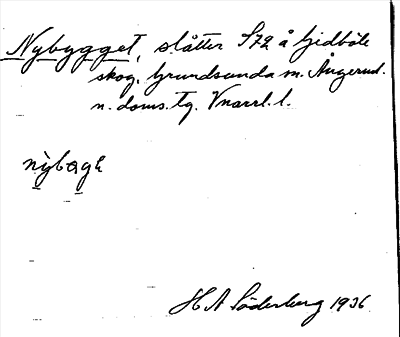 Nybygget, slåtter S72 å Gidböle
skog, Grundsunda sn. Ångerml.
n. doms. tg. Vnorrl. l.
nỳbægɛ
H A Söderberg 1936